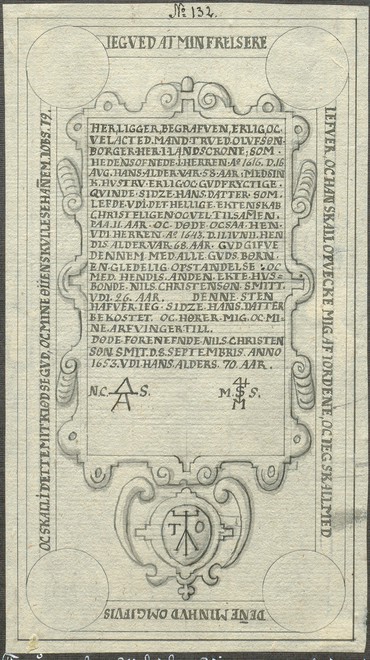 No 132.
IEG VED AT MIN FRELSERE
LEFVER, OC HAN SKAL OPVECKE MIG AF IORDENE, OC IEG SKALL MED
DEÑE MIN HUD OMGIFVIS
OC SKAL I DETTE MIT KIØD SE GUD, OC MINE ØÜEN SKULLE SE HAÑEM. IOBS. 19.
HER LIGGER BEGRAFVEN, ERLIG OC
VELACTED. MAND: TRVED. OLVFSØN
BORGER HER I LANDSCRONE: SOM.
HEDENSOFNEDE I HERREN: Aº 1616. D. 16
AVG. HANS ALDER VAR. 58. AAR: MED SIN
K. HVSTRV. ERLIG OC GVDFRYCTIGE.
QVINDE. SIDZE. HANS. DATTER SOM.
LEFDE. VDI. DET HELLIGE. EKTENSKAB
CHRISTELIGEN OC VEL TILSAMEN.
PAA. 11. AAR. OC DØDE. OC SAA. HEN
VDI HERREN. Aº 1643. D. 11. IVNII. HEN
DIS ALDER VAR. 68. AAR. GVD GIFVE
DENNEM MED ALLE GVDS. BØRN.
EN GLEDELIG OPSTANDELSE: OC
MED HENDIS ANDEN. EKTE. HVS=
BONDE. NILS. CHRISTENSØN. SMITT.
VDI. 26. AAR. DENNE STEN
HAFVER IEG SIDZE. HANS. DATTER
BEKOSTET. OC. HØRER. MIG. OC MI=
NE. ARFVINGER TILL.
DØDE. FORENEFNDE. NILS. CHRISTEN
SØN. SMIT. D. 8. SEPTEMBRIS. ANNO
1653. VDI. HANS. ALDERS. 70. AAR.
N. C. S. M. S.
T O